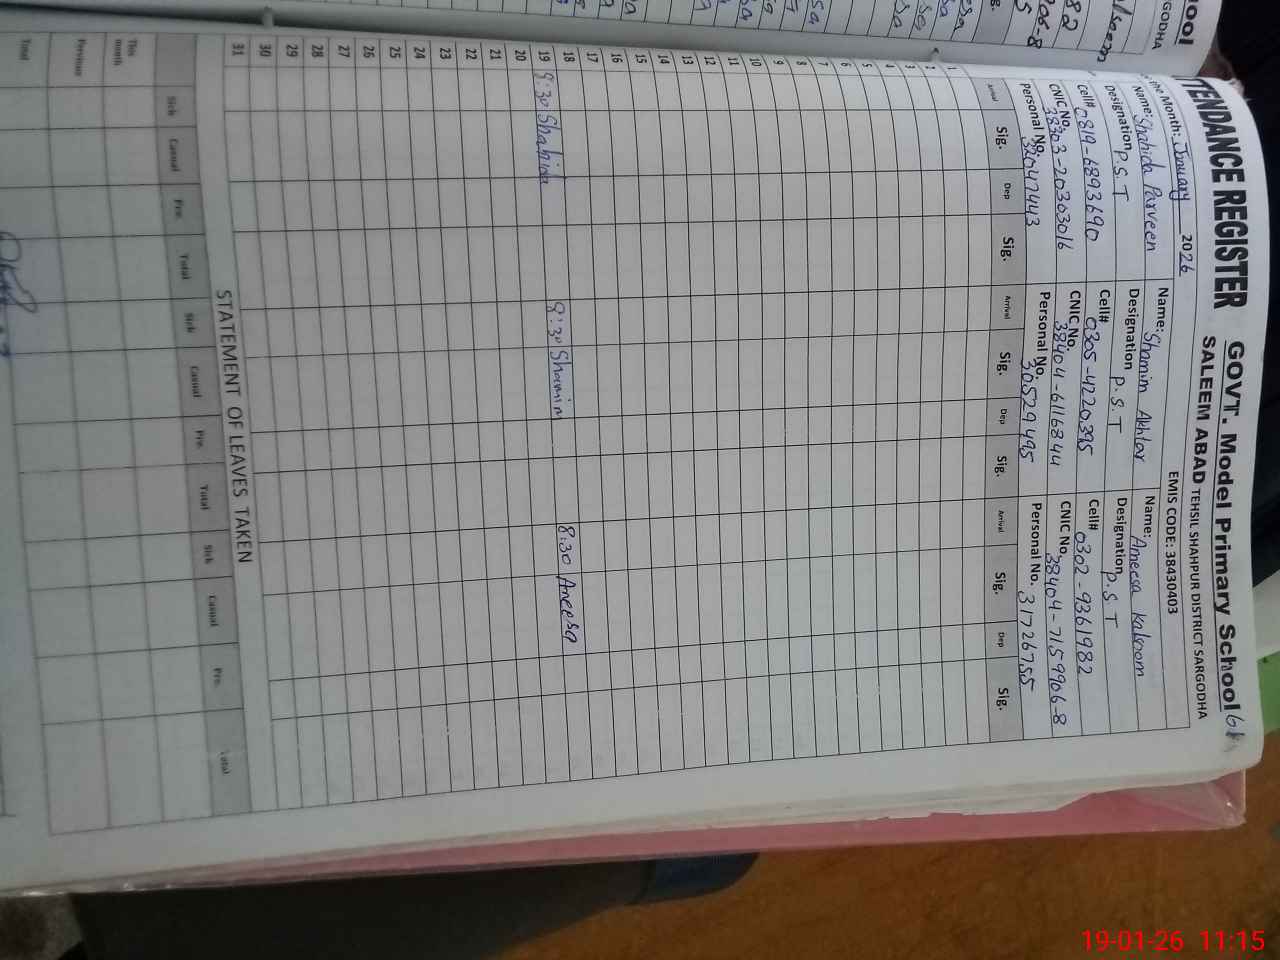 ATTENDANCE REGISTER GOVT. Model Primary School
SALEEM ABAD TEHSIL SHAHPUR DISTRICT SARGODHA
the Month: January 2026 EMIS CODE: 38430403
Name: Shahida Parveen Name: Shamim Akhtar Name: Aneesa Kalsoom
Designation P.S.T Designation P.S.T Designation P.S.T
Cell# 0819-6893690 Cell# 0305-4220395 Cell# 0302-9361982
CNIC No. 38303-20303016 CNIC No. 38404-6116844 CNIC No. 38404-7159906-8
Personal No. 32047443 Personal No. 30529495 Personal No. 31726755
Arrival Sig. Dep Sig. Arrival Sig. Dep Sig. Arrival Sig. Dep Sig.
1
2
3
4
5
6
7
8
9
10
11
12
13
14
15
16
17
18
19 8:30 Shahida 8:30 Shamim 8:30 Aneesa
20
21
22
23
24
25
26
27
28
29
30
31
STATEMENT OF LEAVES TAKEN
Sick Casual Pre. Total Sick Casual Pre. Total Sick Casual Pre. Total
This month
Previous
Total
19-01-26 11:15